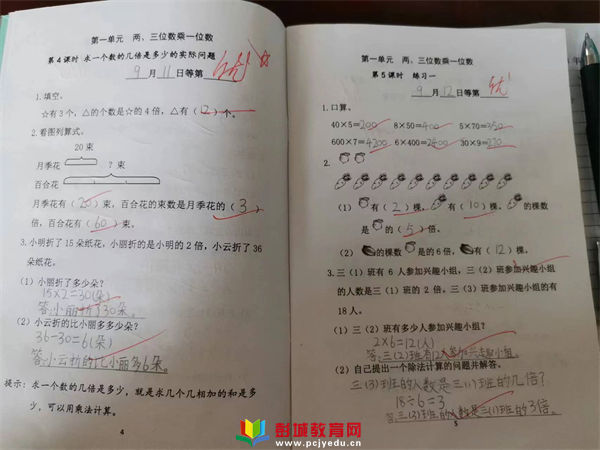 第一单元 两、三位数乘一位数
第4课时 求一个数的几倍是多少的实际问题
9月11日等第 优 ☆
1.填空。
☆有3个，△的个数是☆的4倍，△有（12）个。
2.看图列算式。
20束
月季花
？束
百合花
月季花有（20）束，百合花的束数是月季花的（3）
倍，百合花有（60）束。
3.小明折了15朵纸花，小丽折的是小明的2倍，小云折了36
朵纸花。
（1）小丽折了多少朵？
15×2=30(朵)
答:小丽折了30朵。
（2）小云折的比小丽多多少朵？
36-30=6(朵)
答:小云折的比小丽多6朵。
提示：求一个数的几倍是多少，就是求几个几相加的和是多
少，可以用乘法计算。
4
第一单元 两、三位数乘一位数
第5课时 练习一
9月12日等第 优
1.口算。
40×5=200 8×50=400 5×70=350
600×7=4200 6×400=2400 30×9=270
2.
（1）有（2）棵，有（10）棵，的棵数
是的（5）倍。
（2）的棵数是的6倍，有（12）棵。
3.三（1）班有6人参加兴趣小组，三（2）班参加兴趣小组
的人数是三（1）班的2倍，三（3）班参加兴趣小组的有
18人。
（1）三（2）班有多少人参加兴趣小组？
2×6=12(人)
答:三(2)班有12人参加兴趣小组。
（2）自己提出一个除法计算的问题并解答。
三(3)班的人数是三(1)班的几倍?
18÷6=3
答:三(3)班的人数是三(1)班的3倍。
5
彭城教育网
www.pcjyedu.cn